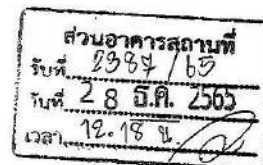 ส่วนอาคารสถานที่
รับที่ 2387 / 65
วันที่ 28 ธ.ค. 2565
เวลา 12.18 น.